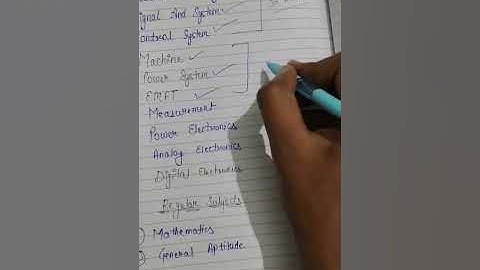 Signal And System ✓
Control System ✓
Machine ✓
Power System ✓
EMFT ✓
Measurement
Power Electronics
Analog Electronics
Digital Electronics
Regular Subjects
Mathematics
② General Aptitude